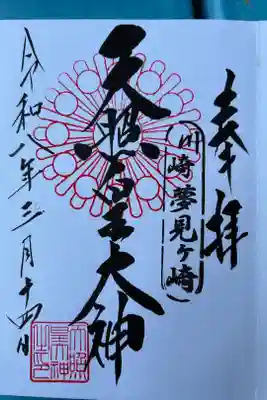 奉拝
(川崎夢見ヶ崎)
天照皇大神
令和八年三月十四日